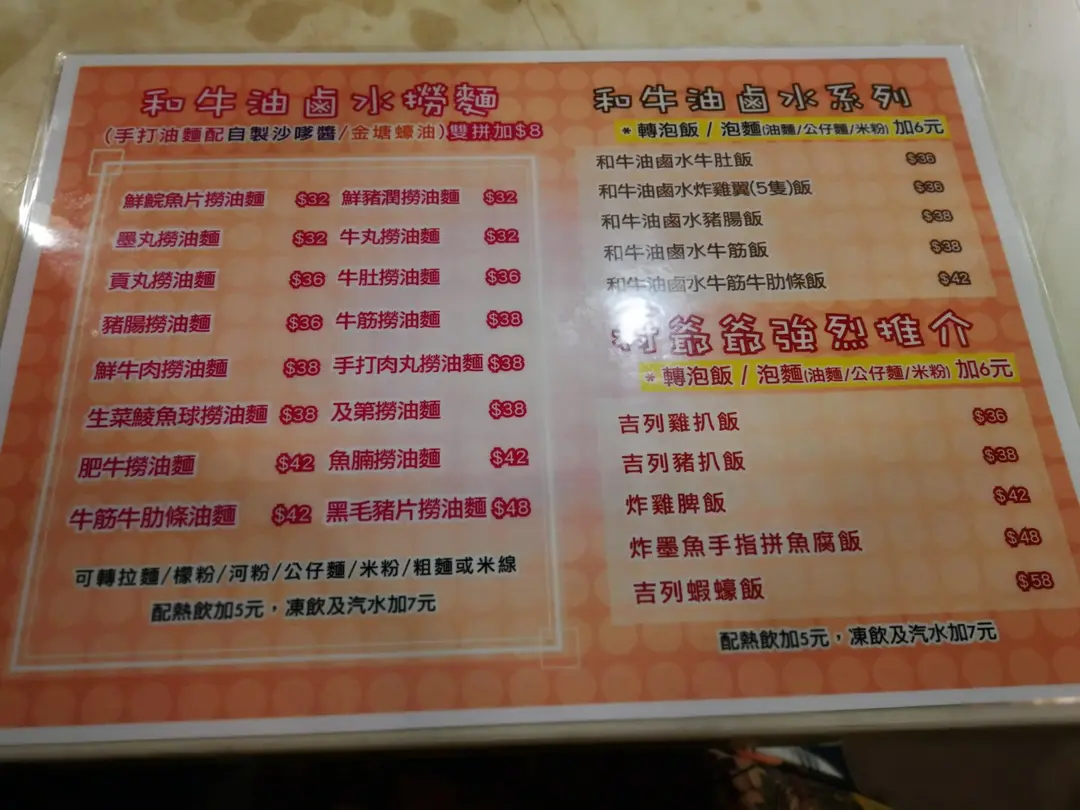 和牛油鹵水撈麵
(手打油麵配自製沙嗲醬/金塘蠔油)雙拼加$8
鮮鯇魚片撈油麵 $32 鮮豬潤撈油麵 $32
墨丸撈油麵 $32 牛丸撈油麵 $32
貢丸撈油麵 $36 牛肚撈油麵 $36
豬腸撈油麵 $36 牛筋撈油麵 $38
鮮牛肉撈油麵 $38 手打肉丸撈油麵 $38
生菜鯪魚球撈油麵 $38 及第撈油麵 $38
肥牛撈油麵 $42 魚腩撈油麵 $42
牛筋牛肋條油麵 $42 黑毛豬片撈油麵 $48
可轉拉麵/檬粉/河粉/公仔麵/米粉/粗麵或米線
配熱飲加5元，凍飲及汽水加7元
和牛油鹵水系列
*轉泡飯 / 泡麵(油麵/公仔麵/米粉) 加6元
和牛油鹵水牛肚飯 $36
和牛油鹵水炸雞翼(5隻)飯 $36
和牛油鹵水豬腸飯 $38
和牛油鹵水牛筋飯 $38
和牛油鹵水牛筋牛肋條飯 $42
爺爺強烈推介
*轉泡飯 / 泡麵(油麵/公仔麵/米粉) 加6元
吉列雞扒飯 $36
吉列豬扒飯 $38
炸雞脾飯 $42
炸墨魚手指拼魚腐飯 $48
吉列蝦蠔飯 $58
配熱飲加5元，凍飲及汽水加7元